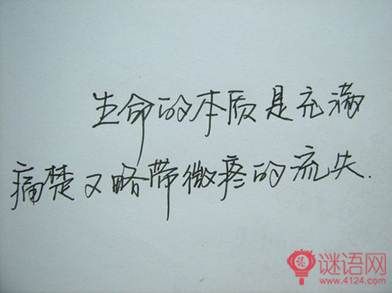 生命的本质是充满
痛楚又略带微疼的流失.
谜语网
www.4124.com